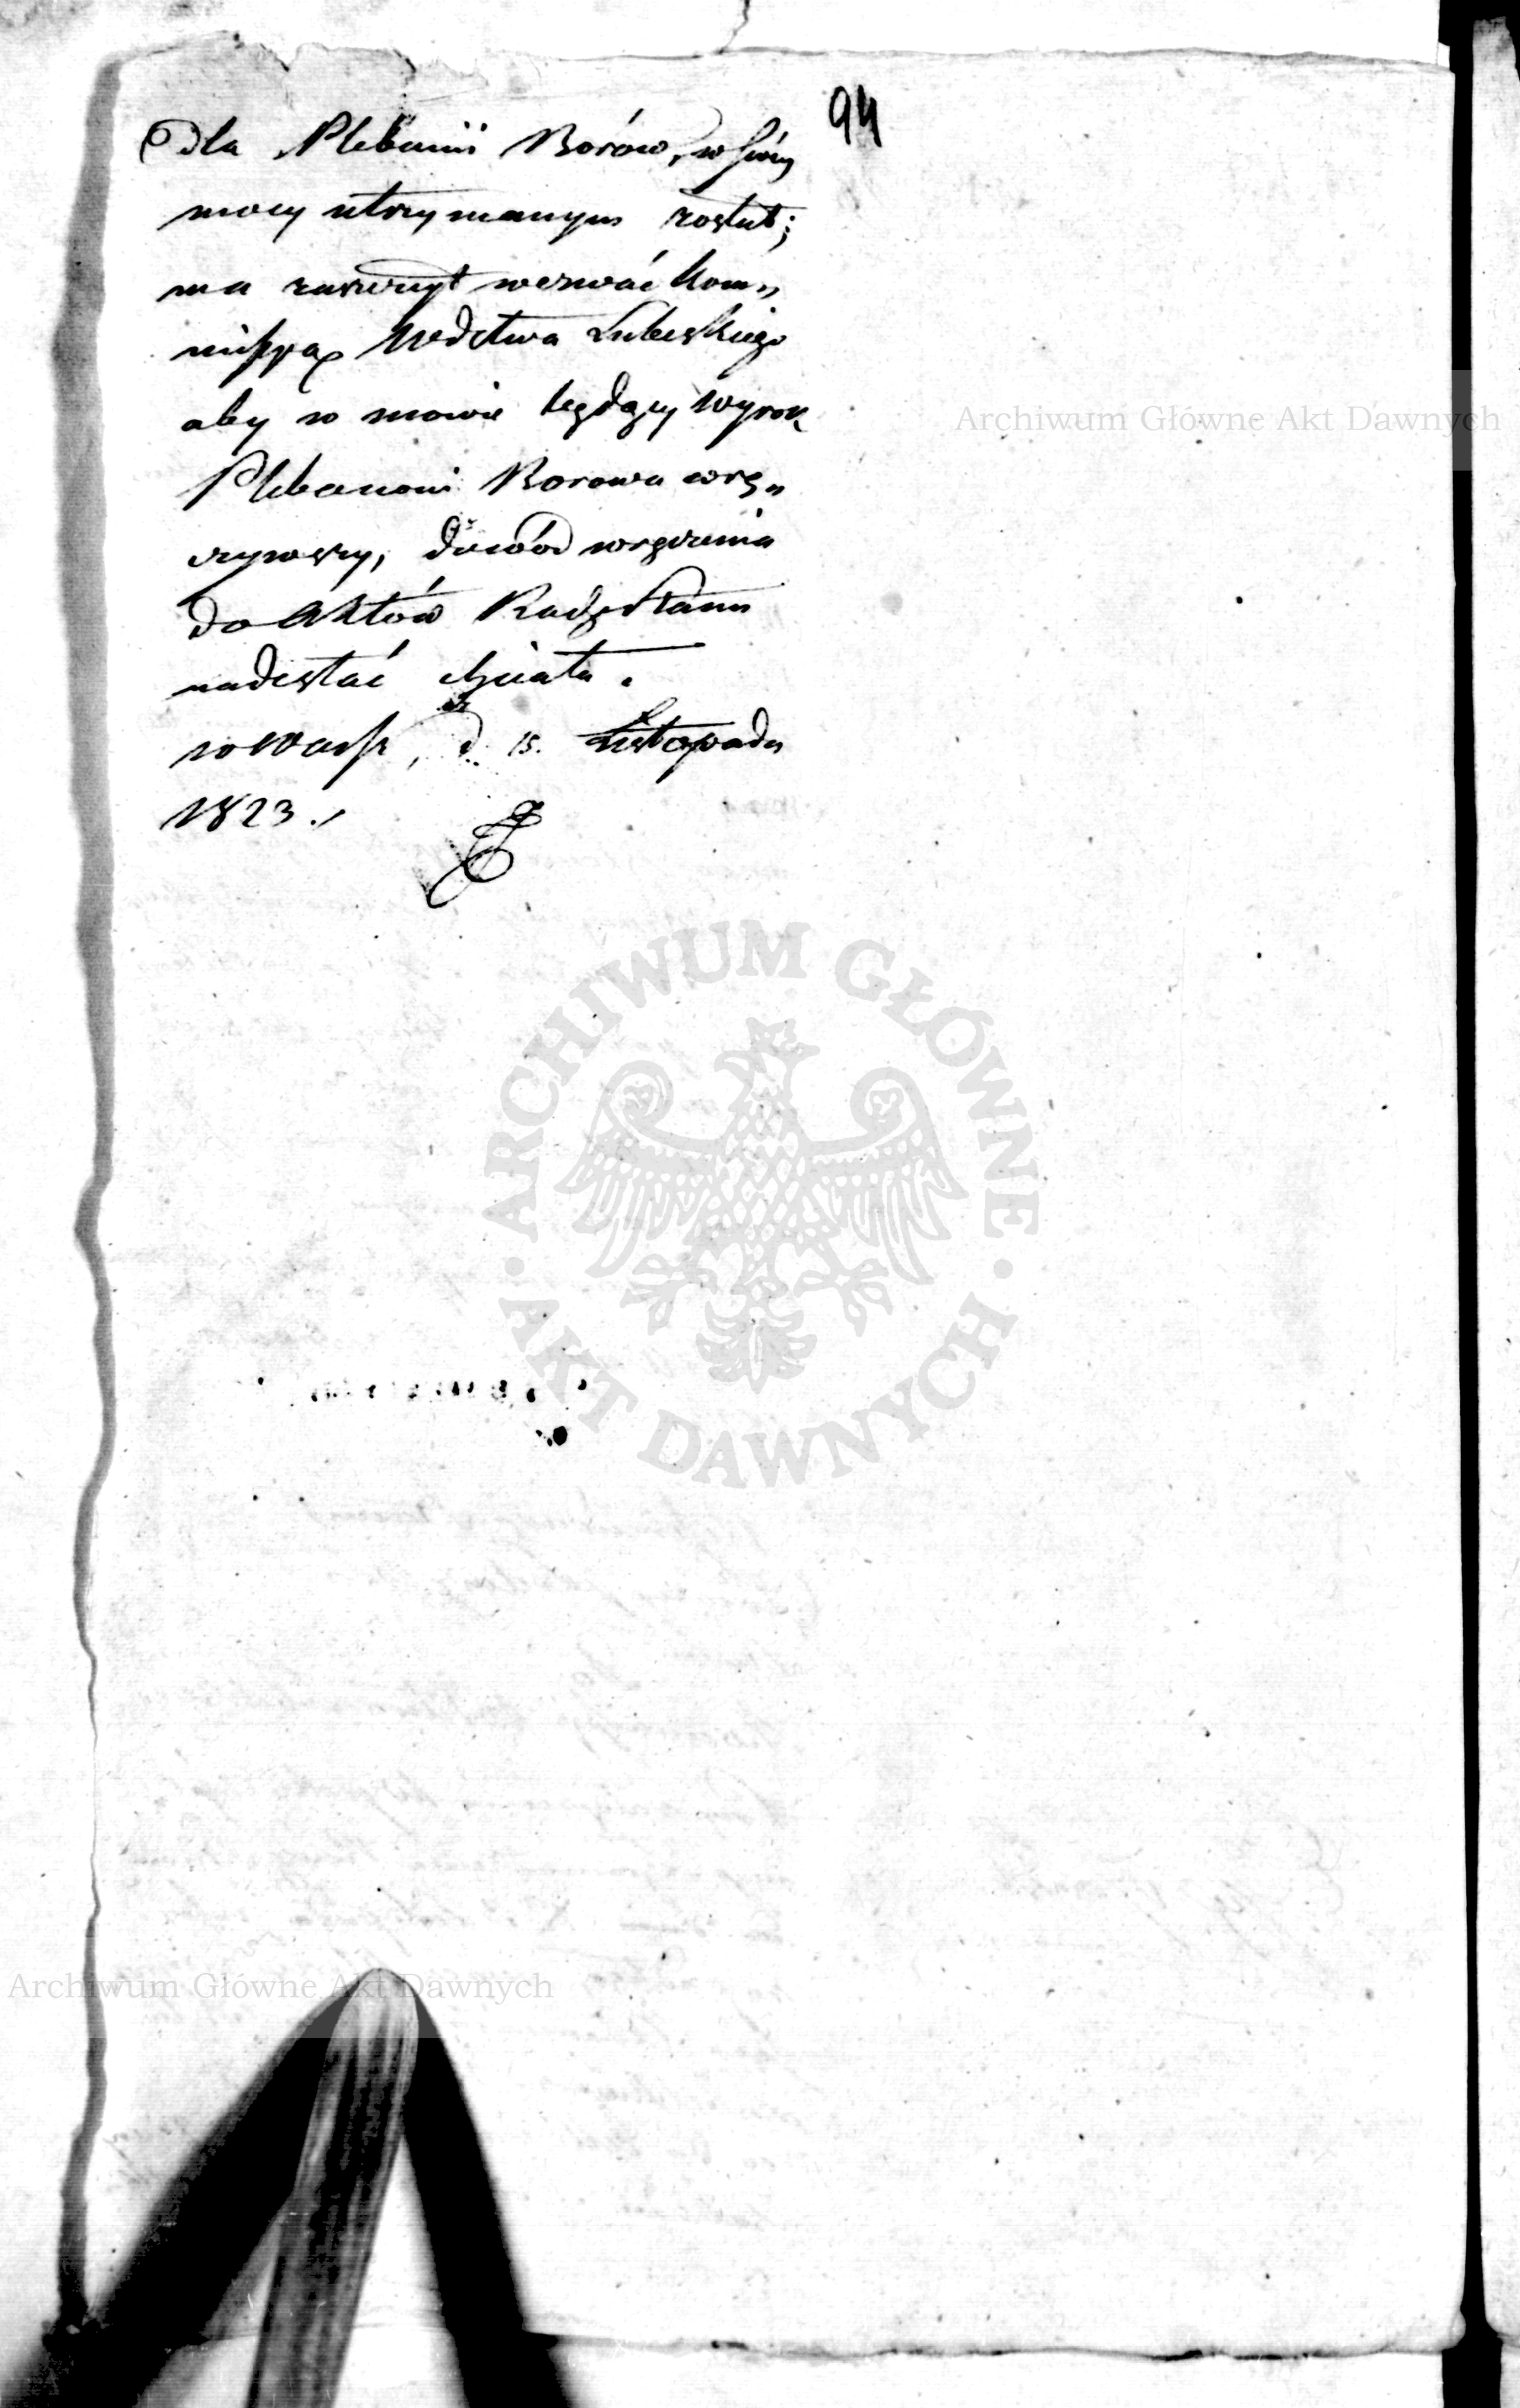 94
Dla Plebanii Borów, w swéy
mocy utrzymanym został;
ma zaszczyt wezwać Kom„
missyą Wdztwa Lubelskiego
aby w mowie będący wyrok
Plebanowi Borowa wrę„
czywszy, dowód wręczenia
do Aktów Rady Stanu
nadesłać chciała.
w Warsz, d. 15. Listopada
1823.
Archiwum Główne Akt Dawnych
ARCHIWUM GŁÓWNE AKT DAWNYCH
Archiwum Główne Akt Dawnych